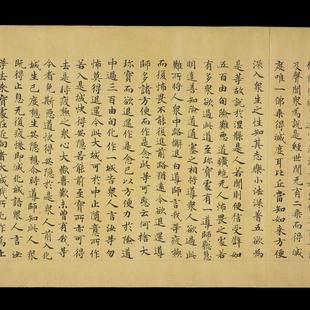 及聲聞衆為說是經世間无有二乘而得滅
度唯一佛乘得滅度耳比丘當知如來方便
深入衆生之性知其志樂小法深著五欲為
是等故說於涅槃是人若聞則便信受譬如
五百由旬險難惡道曠絶无人怖畏之處若
有多衆欲過此道至珍寶處有一導師聡慧
明達善知險道通塞之相將導衆人欲過此
難所將人衆中路懈退白導師言我等疲極
而復怖畏不能復進前路猶遠今欲退還導
師多諸方便而作是念此等可愍云何捨大
珍寶而欲退還作是念已以方便力於險道
中過三百由旬化作一城告衆人言汝等勿
怖莫得退還今此大城可於中止隨意所作
若入是城快得安隱若能前至寶所亦可得
去是時疲極之衆心大歡喜歎未曾有我等
今者免斯惡道快得安隱於是衆人前入化
城生已度想生安隱想尒時導師知此人衆
既得止息无復疲惓即滅化城語衆人言汝
等去來寶處在近向者大城我所化作為止